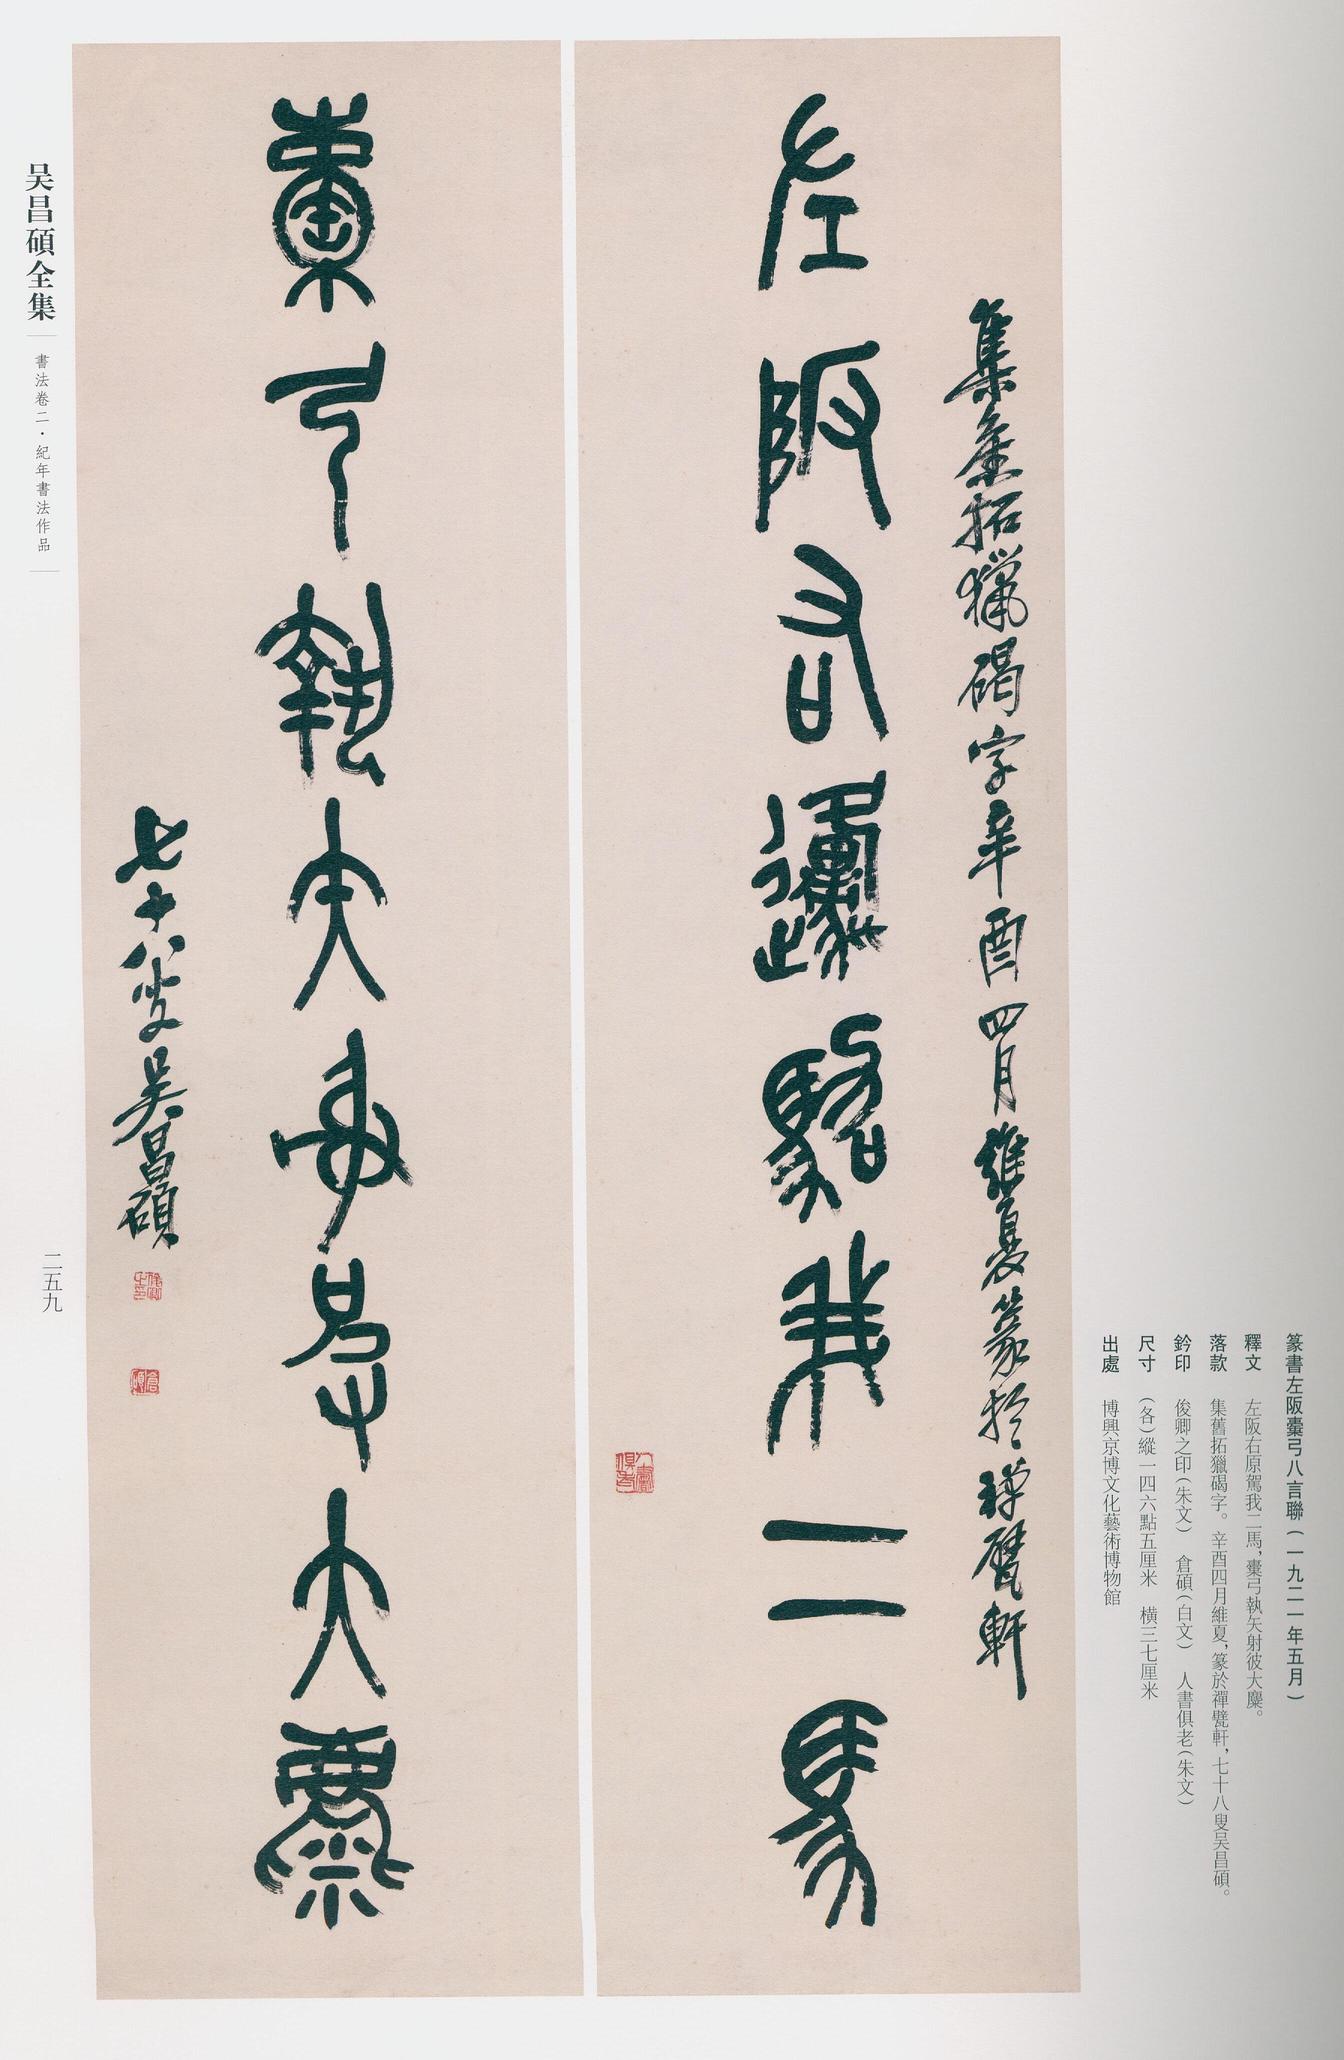 篆書左阪櫜弓八言聯(一九二一年五月)
釋文 左阪右原駕我二馬,櫜弓執矢射彼大麋。
落款 集舊拓獵碣字。辛酉四月維夏,篆於禪甓軒,七十八叟吴昌碩。
鈐印 俊卿之印(朱文) 倉碩(白文) 人書俱老(朱文)
尺寸 (各)縱一四六點五厘米 橫三七厘米
出處 博興京博文化藝術博物館
集舊拓獵碣字辛酉四月維夏篆於禪甓軒
左阪右原駕我二馬
人書俱老
櫜弓執矢射彼大麋
七十八叟吴昌碩
俊卿之印
倉碩
吴昌碩全集
書法卷二·紀年書法作品
二五九